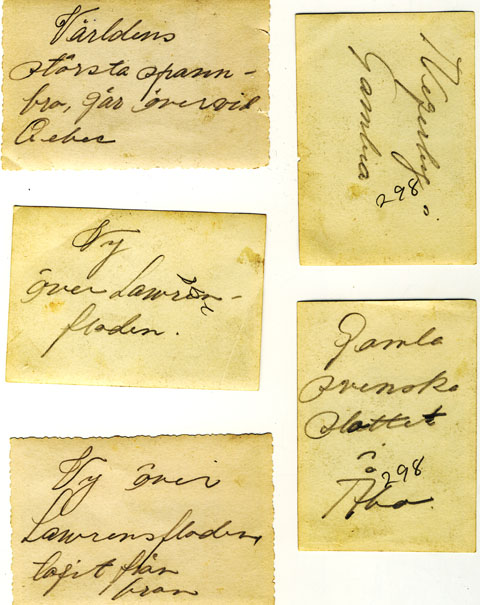 Världens
största spann-
bro, går över vid
Qebec
Vy
över Lawren-
floden.
Vy över
Lawrensfloden,
tagit från
bron
Negerby i
Gambia
298
Gamla
svenska
slottet
i
298
Åbo.